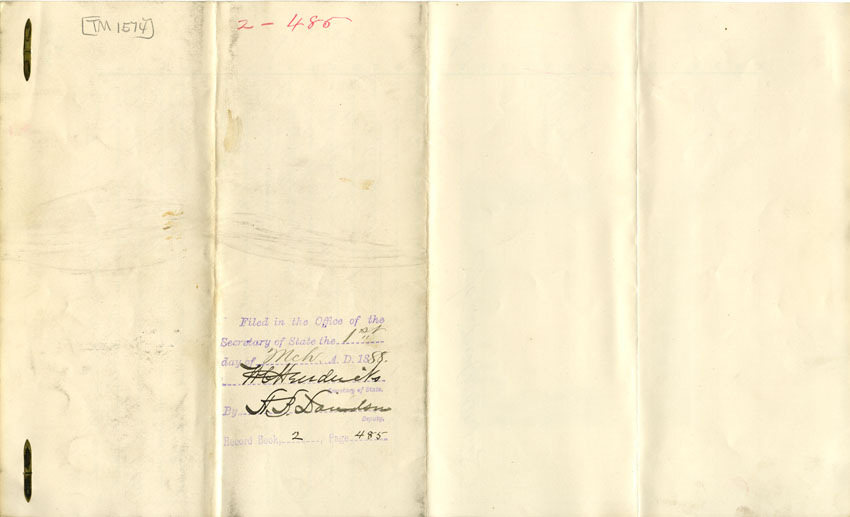 [TM 1574]
2 - 485
Filed in the Office of the
Secretary of State the 1st
day of Mch A. D. 1888.
W C Hendricks
Secretary of State.
By A. B. Davidson
Deputy.
Record Book, 2, Page 485